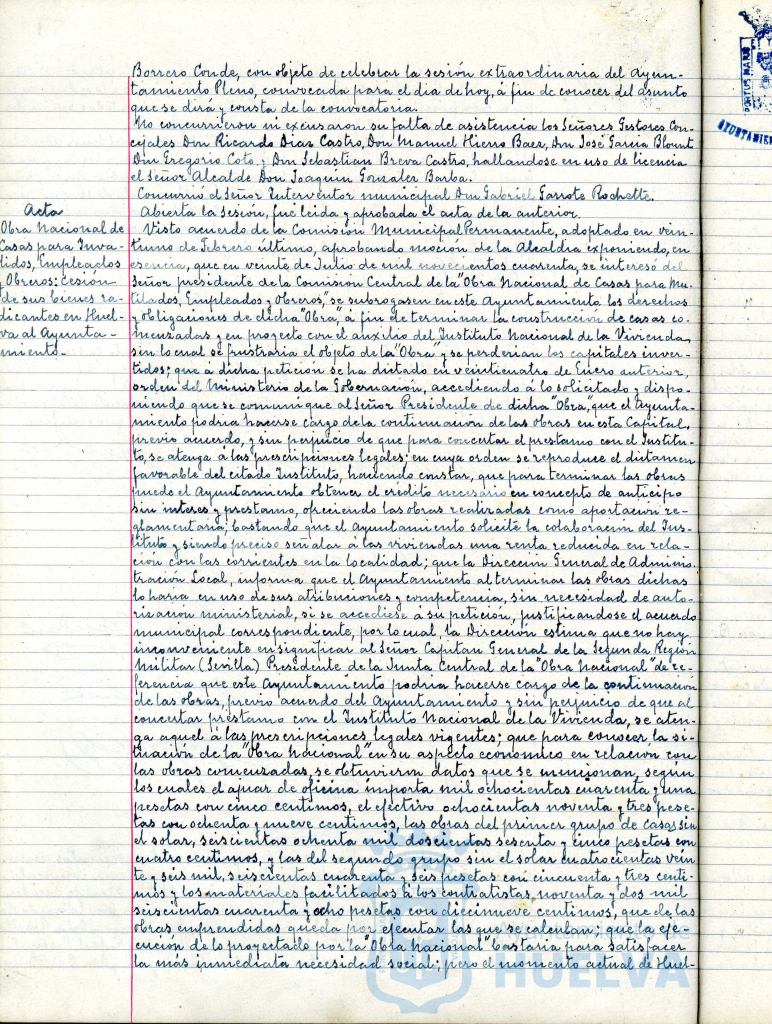 Borrero Conde, con objeto de celebrar la sesión extraordinaria del Ayun-
tamiento Pleno, convocada para el dia de hoy, á fin de conocer del asunto
que se dirá y consta de la convocatoria.
No concurrieron ni excusaron su falta de asistencia los Señores Gestores Con-
cejales Don Ricardo Diaz Castro, Don Manuel Hierro Baez, Don José Garcia Blount
Don Gregorio Coto, y Don Sebastian Breva Castro, hallandose en uso de licencia
el Señor Alcalde Don Joaquin Gonzalez Barba.
Concurrió el Señor Interventor municipal Don Gabriel Garrote Rochette.
Abierta la sesión, fué leida y aprobada el acta de la anterior.
Acta
Obra Nacional de
Casas para Inva-
lidos, Empleados
y Obreros: Cesión
de sus bienes ra-
dicantes en Huel-
va al Ayunta-
miento.-
Visto acuerdo de la Comisión Municipal Permanente, adoptado en vein-
tiuno de Febrero último, aprobando moción de la Alcaldia exponiendo, en
esencia, que en veinte de Julio de mil novecientos cuarenta, se interesó del
Señor presidente de la Comision Central de la "Obra Nacional de Casas para Mu-
tilados, Empleados y Obreros," se subrogasen en este Ayuntamiento los derechos
y obligaciones de dicha "Obra", á fin de terminar la construcción de casas co-
menzadas y en proyecto con el auxilio del Instituto Nacional de la Vivienda,
sin lo cual se frustraria el objeto de la "Obra" y se perderian los capitales inver-
tidos; que á dicha petición se ha dictado en veinticuatro de Enero anterior,
orden del Ministerio de la Gobernación, accediendo á lo solicitado y dispo-
niendo que se comunique al Señor Presidente de dicha "Obra", que el Ayunta-
miento podria hacerse cargo de la continuación de las obras en esta Capital,
previo acuerdo, y sin perjuicio de que para concertar el prestamo con el Institu-
to, se atenga á las prescripciones legales; en cuya orden se reproduce el dictamen
favorable del citado Instituto, haciendo constar, que para terminar las obras
puede el Ayuntamiento obtener el credito necesario en concepto de anticipo
sin interes y prestamo, ofreciendo las obras realizadas como aportación re-
glamentaria, bastando que el Ayuntamiento solicite la colaboración del Ins-
tituto y siendo preciso señalar á las viviendas una renta reducida en rela-
ción con las corrientes en la localidad; que la Dirección General de Adminis-
tración Local, informa que el Ayuntamiento al terminar las obras dichas
lo haria en uso de sus atribuciones y competencia, sin necesidad de auto-
rización ministerial, si se accediese á su petición, justificandose el acuerdo
municipal correspondiente, por lo cual, la Dirección estima que no hay
inconveniente en significar al Señor Capitan General de la Segunda Región
Militar (Sevilla) Presidente de la Junta Central de la "Obra Nacional" de re-
ferencia que este Ayuntamiento podria hacerse cargo de la continuación
de las obras, previo acuerdo del Ayuntamiento y sin perjuicio de que al
concertar préstamo con el Instituto Nacional de la Vivienda, se aten-
ga aquel á las prescripciones legales vigentes; que para conocer la si-
tuación de la "Obra Nacional" en su aspecto economico en relación con
las obras comenzadas, se obtuvieron datos que se mencionan, según
los cuales el ajuar de oficina importa mil ochocientas cuarenta y una
pesetas con cinco centimos, el efectivo ochocientas noventa y tres pese-
tas con ochenta y nueve centimos, las obras del primer grupo de casas sin
el solar, seiscientas ochenta mil doscientas sesenta y cinco pesetas con
cuatro centimos, y las del segundo grupo sin el solar cuatrocientas vein-
te y seis mil, seiscientas cuarenta y seis pesetas con cincuenta y tres centi-
mos y los materiales facilitados á los contratistas, noventa y dos mil
seiscientas cuarenta y ocho pesetas con diecinueve centimos, que de las
obras emprendidas queda por ejecutar las que se calculan; que la eje-
cución de lo proyectado por la "Obra Nacional" bastaria para satisfacer
la más inmediata necesidad social; pero el momento actual de Huel-
HUELVA
PORTUS MARIS
AYUNTAMIEN